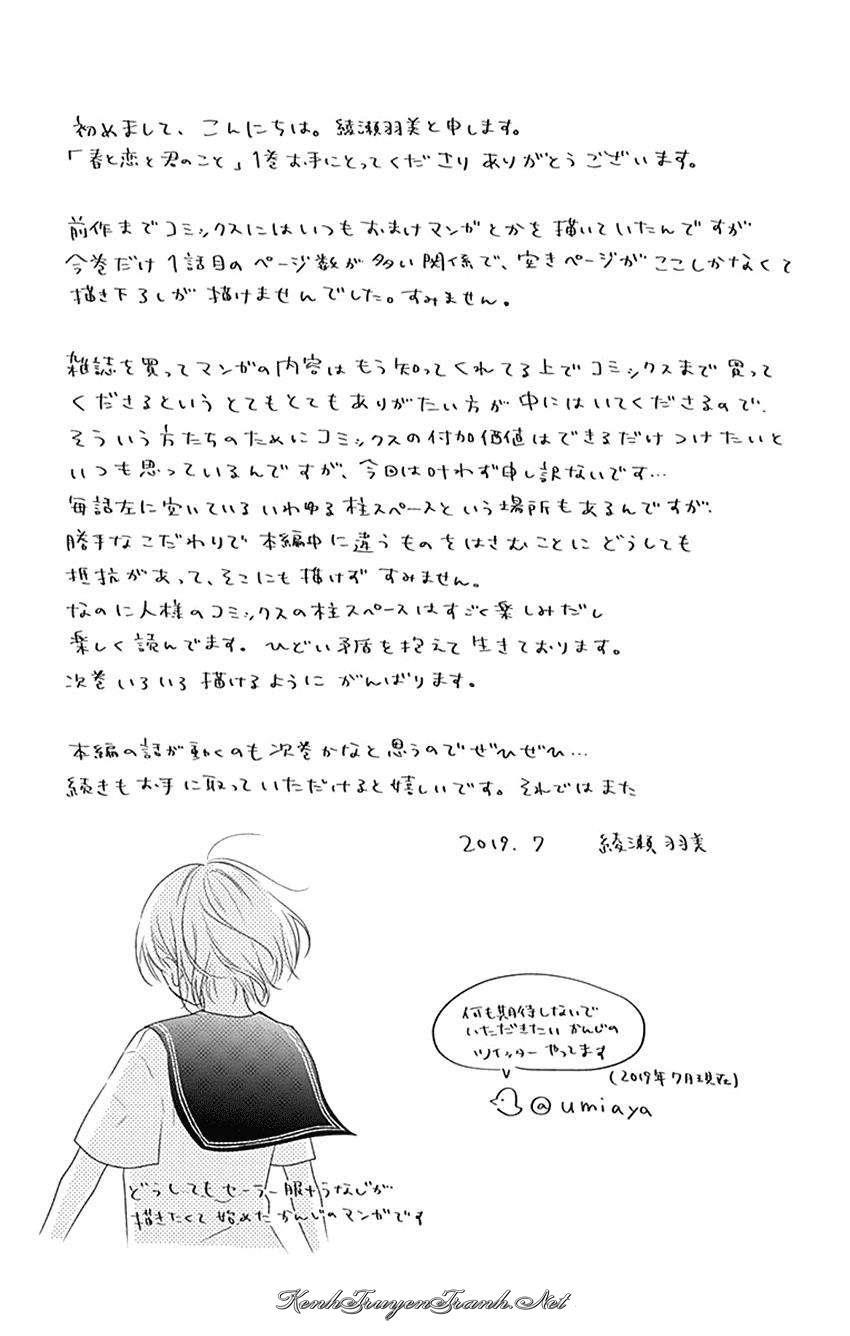 初めまして、こんにちは。綾瀬羽美と申します。
「春と恋と君のこと」1巻お手にとってくださりありがとうございます。
前作までコミックスにはいつもおまけマンガとかを描いていたんですが
今巻だけ1話目のページ数が多い関係で、空きページがここしかなくて
描き下ろしが描けませんでした。すみません。
雑誌を買ってマンガの内容はもう知ってくれてる上でコミックスまで買って
くださるというとてもとてもありがたい方が中にはいてくださるので、
そういう方たちのためにコミックスの付加価値はできるだけつけたいと
いつも思っているんですが、今回は叶わず申し訳ないです…
毎話左に空いているいわゆる柱スペースという場所もあるんですが、
勝手なこだわりで本編中に違うものをはさむことにどうしても
抵抗があって、そこにも描けずすみません。
なのに人様のコミックスの柱スペースはすごく楽しみだし
楽しく読んでます。ひどい矛盾を抱えて生きております。
次巻いろいろ描けるようにがんばります。
本編の話が動くのも次巻かなと思うのでぜひぜひ…
続きもお手に取っていただけると嬉しいです。それではまた
2019.7 綾瀬羽美
何も期待しないで
いただきたいかんじの
ツイッターやってます
(2019年7月現在)
@umiaya
どうしてもセーラー服+うなじが
描きたくて始めたかんじのマンガです
KenhTruyenTranh.Net